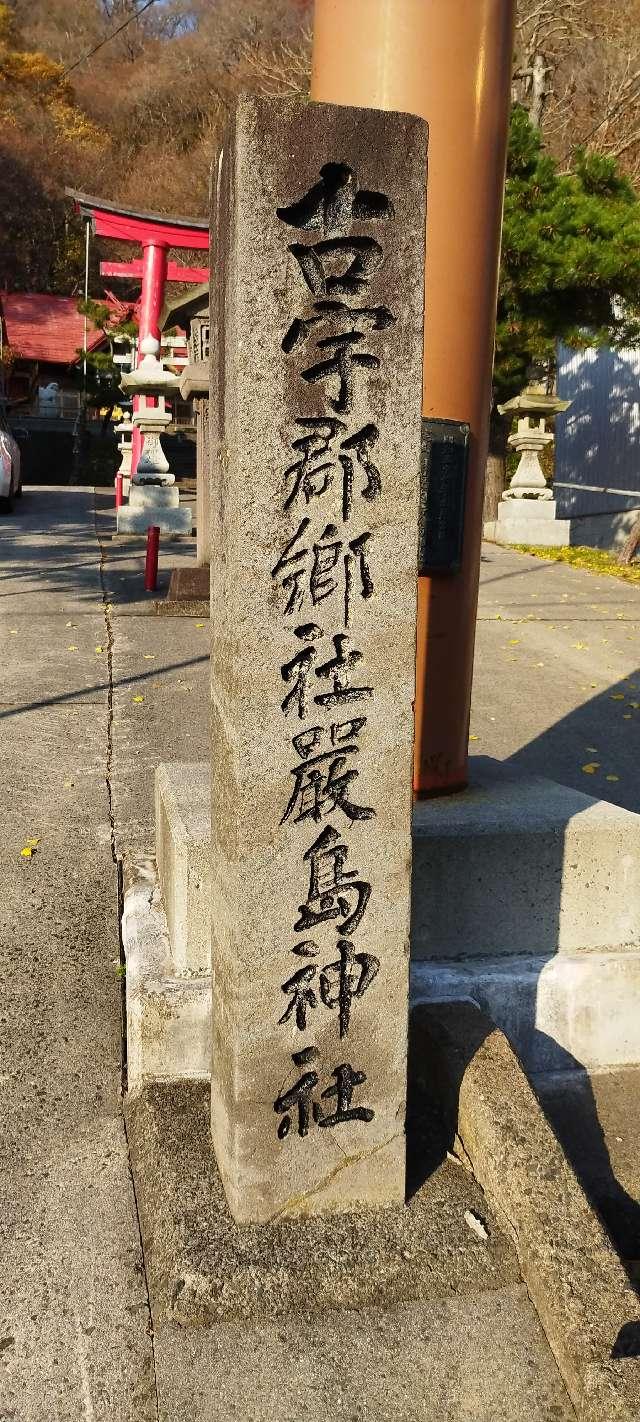 古宇郡郷社嚴島神社